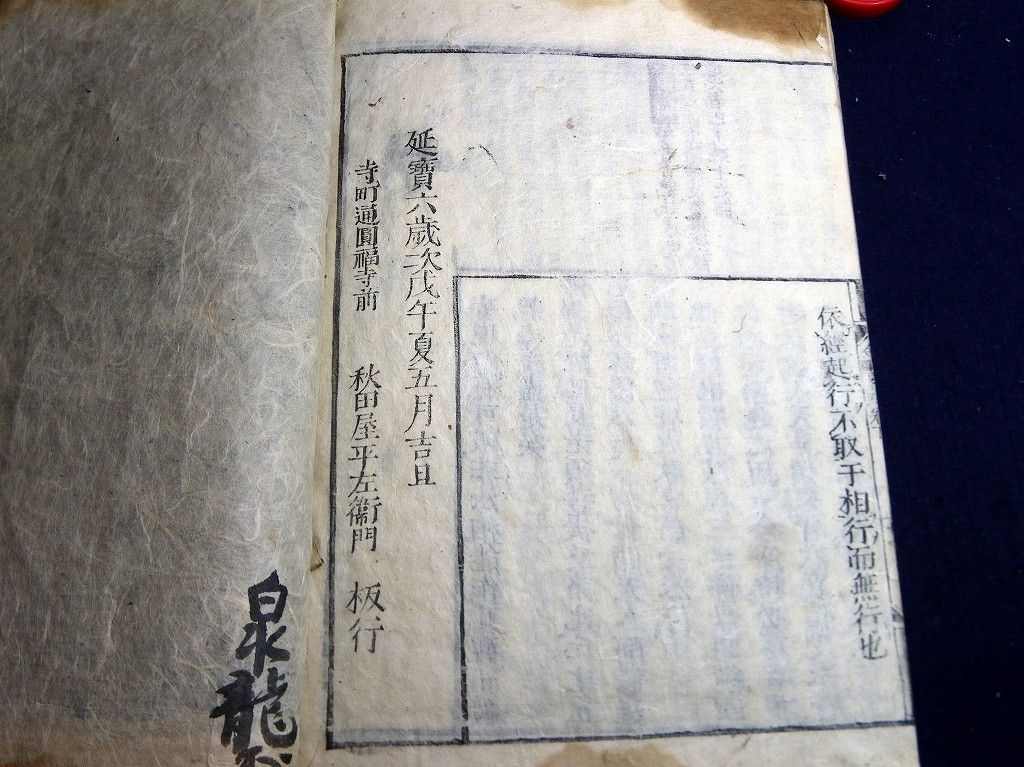 依經起行不取于相行而無行也
延寶六歲次戊午夏五月吉旦
寺町通圓福寺前 秋田屋平左衞門 板行
泉龍